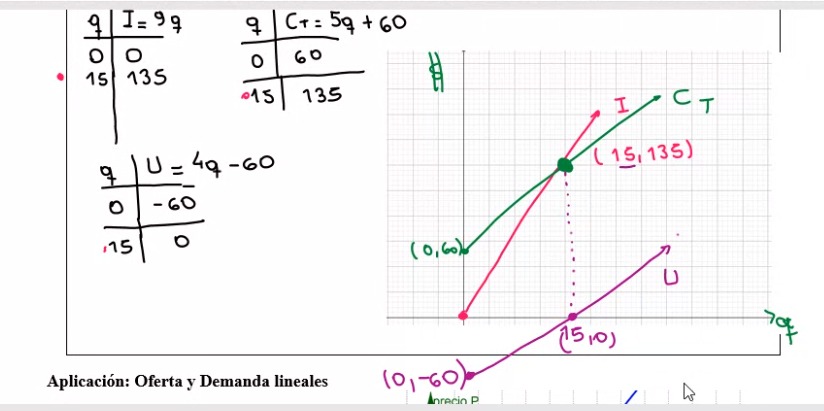 q I = 9q
0 0
15 135
q CT = 5q + 60
0 60
15 135
q U = 4q - 60
0 -60
15 0
$
I
CT
(15, 135)
(0, 60)
U
q
(15, 0)
(0, -60)
Aplicación: Oferta y Demanda lineales
precio P